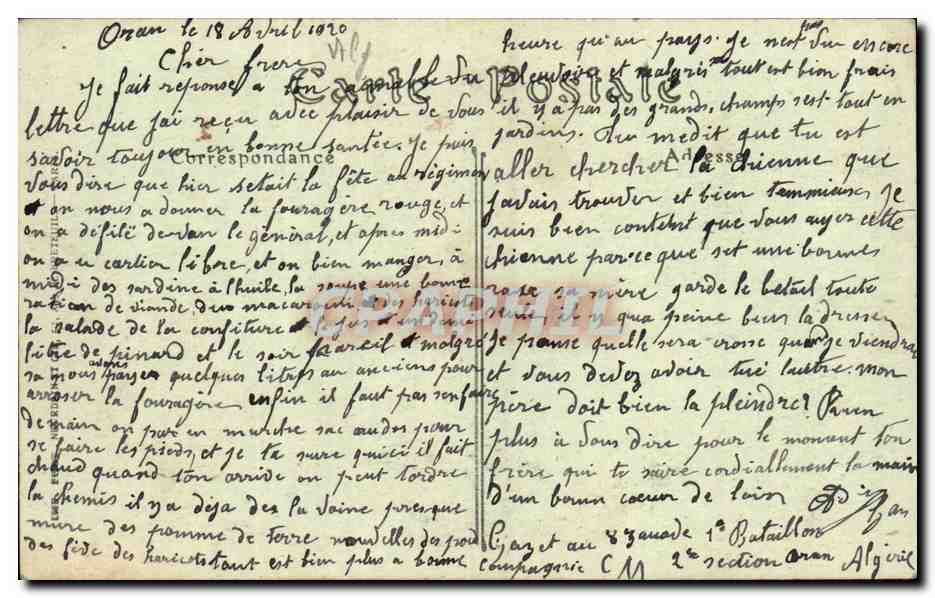 Oran le 18 Avril 1920
Cher frere
Je fait réponse a ton aimable
lettre que jai reçu avec plaisir de vous
savoir toujour en bonne santée. Je puis
vous dire que hier setait la fête au régiment
on nous a donner la fouragère rouge, et
on a défilé devan le général, et apres midi
on a u cartier libre, et on bien manger, à
midi des sardine à lhuile, la soupe une bonne
ration de viande, du macaroni des haricots
la salade de la confiture
litre de pinard et le soir pareil et malgré
sa nous avons payer quelques litres au anciens pour
arroser la fouragère enfin il faut pas sen faire
demain on par en marche sac au dos pour
se faire les pieds, et je ta sure quici il fait
chaud quand ton arrive on peut tordre
la chemis il ya deja des la vaine presque
mure des pomme de terre nouvelles des poid
des fève des haricots tout est bien plus a bonne
heure qu'au pays. Je nest vu encore
pleuvoir et malgrés tout est bien frais
il y a pas des grands champs sest tout en
jardins. Tu me dit que tu est
aller chercher la chienne que
javais trouver et bien tan mieux, Je
suis bien content que vous ayer cette
chienne parce que set une bonnes
race la mère garde le betail toute
seule il y qua peine bien la dresser
Je panse quelle sera crosse quand je viendrai
et vous devez avoir tué lautre. mon
père doit bien la pleindre? Rien
plus à vous dire pour le moment ton
frère qui te saire cordiallement la main
d'un bonn coeur de loin
Gazet au 8 zouave 1e Bataillon
Compagnie C M 2me section Oran Algérie
Carte Postale
Correspondance
Adresse
CPARHIL